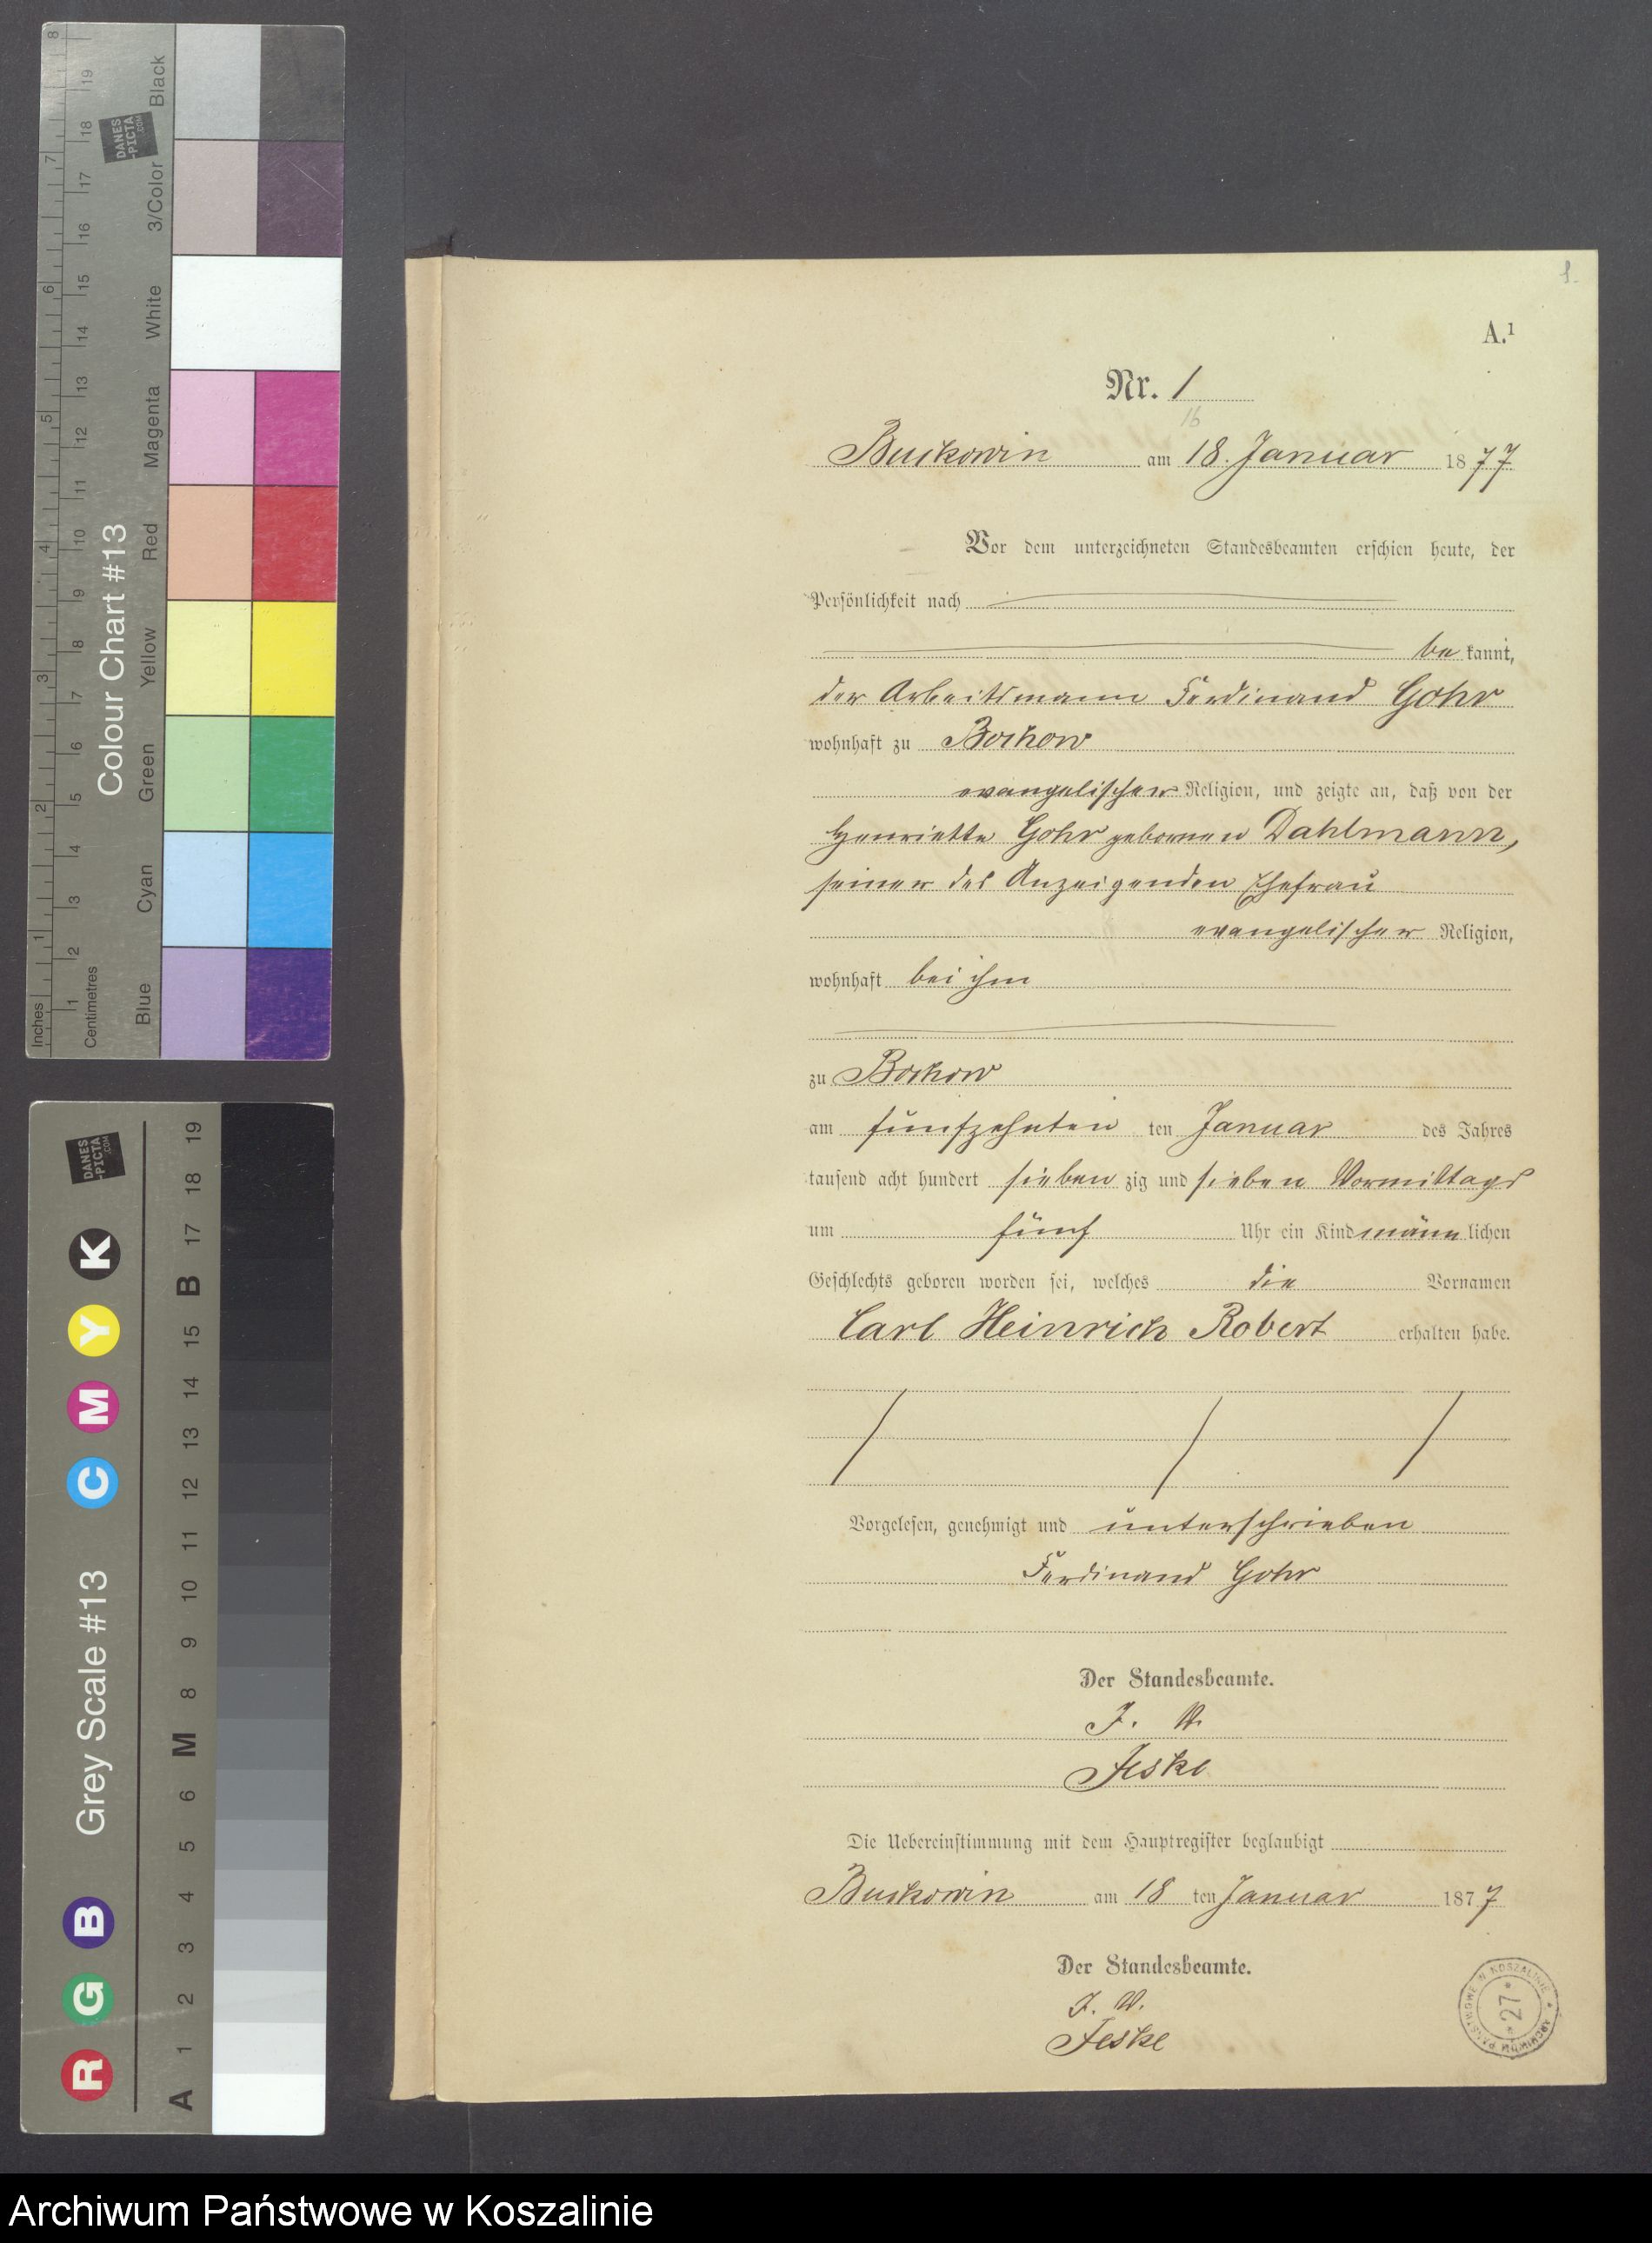 8
7
6
5
4
3
2
1
Inches
19
18
17
16
15
14
13
12
11
10
9
8
7
6
5
4
3
2
1
Centimetres
DANES
-PICTA
.COM
Colour Chart #13
Black
3/Color
White
Magenta
Red
Yellow
Green
Cyan
Blue
DANES
-PICTA
.COM
Grey Scale #13
R G B C M Y K
A 1 2 3 4 5 6 M 8 9 10 11 12 13 14 15 B 17 18 19
1.
A.¹
Nr. 1
16
Buckowin am 18. Januar 1877
Vor dem unterzeichneten Standesbeamten erschien heute, der
Persönlichkeit nach
be kannt,
der Arbeitsmann Ferdinand Gohr
wohnhaft zu Bochow
evangelischer Religion, und zeigte an, daß von der
Henriette Gohr gebornen Dahlmann,
seiner des Anzeigenden Ehefrau
evangelischer Religion,
wohnhaft bei ihm
zu Bochow
am fünfzehnten ten Januar des Jahres
tausend acht hundert sieben zig und sieben Vormittags
um fünf Uhr ein Kind männ lichen
Geschlechts geboren worden sei, welches die Vornamen
Carl Heinrich Robert erhalten habe.
Vorgelesen, genehmigt und unterschrieben
Ferdinand Gohr
Der Standesbeamte.
J. V.
Jeske
Die Uebereinstimmung mit dem Hauptregister beglaubigt
Buckowin am 18 ten Januar 1877
Der Standesbeamte.
J. V.
Jeske
ARCHIWUM PAŃSTWOWE W KOSZALINIE
* 27 *
Archiwum Państwowe w Koszalinie